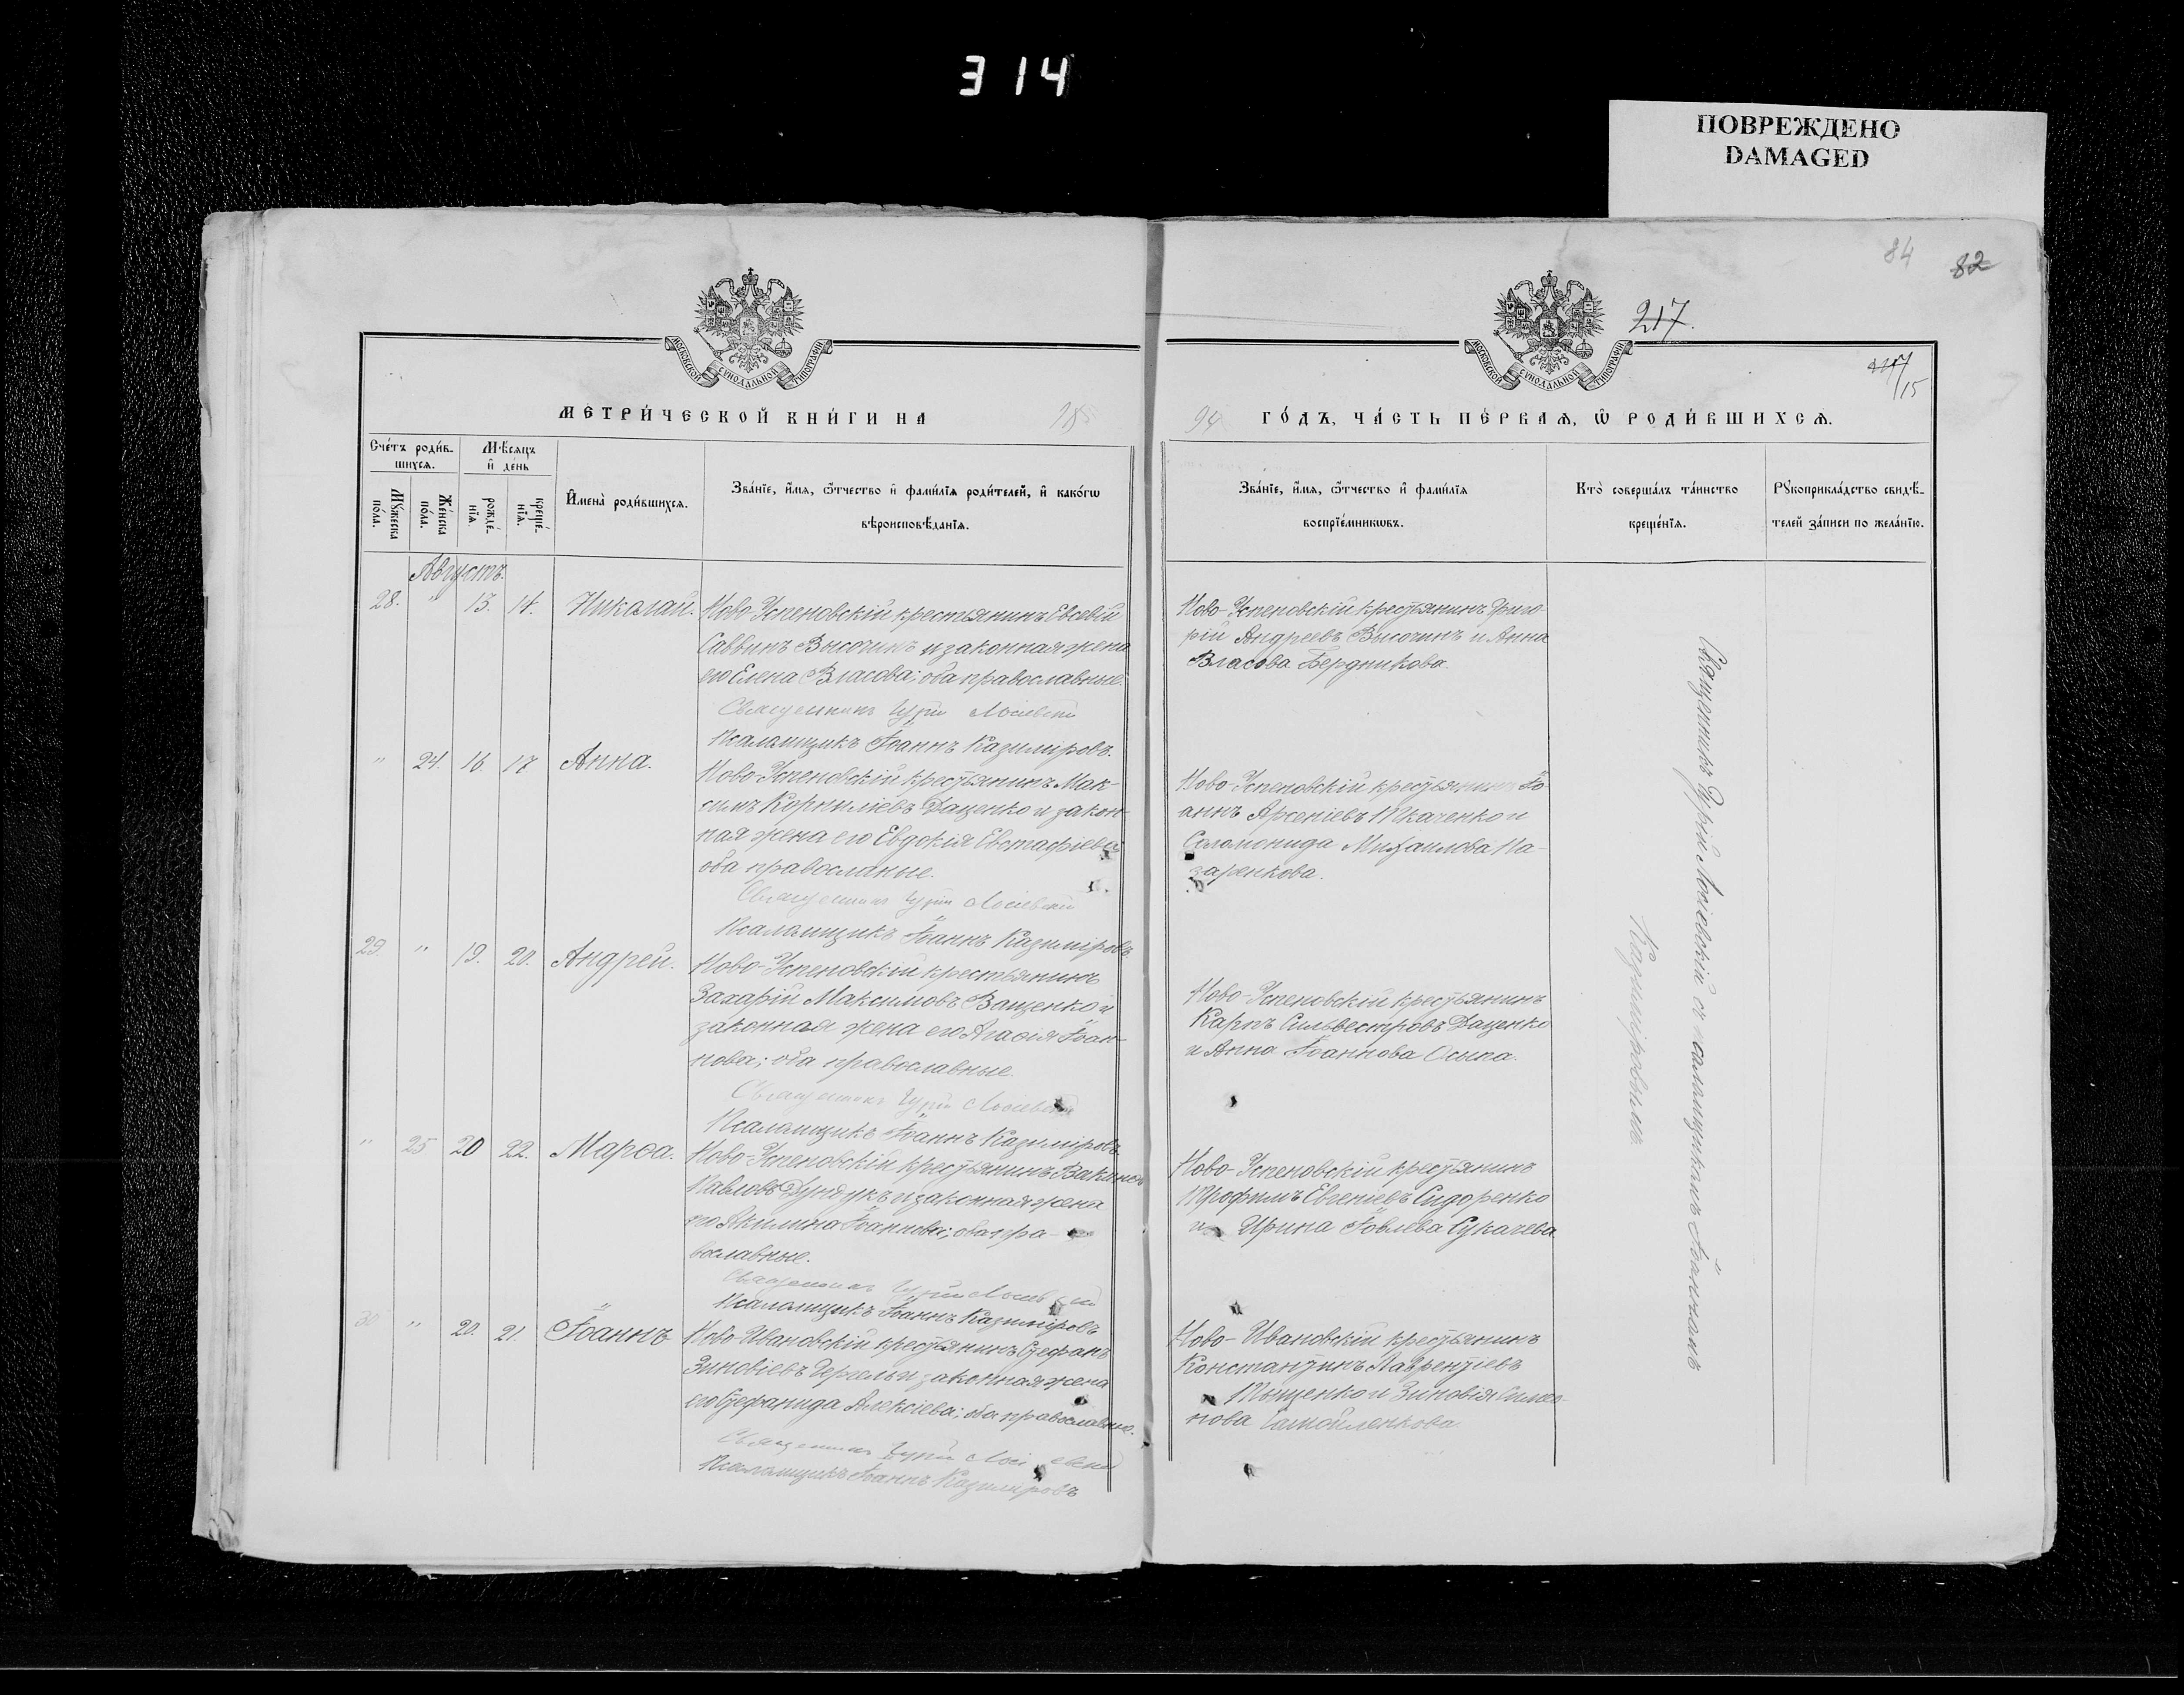 314
ПОВРЕЖДЕНО
DAMAGED
84 82
217.
15
МОСКОВСКОЙ СѴНОДАЛЬНОЙ ТИПОГРАФІИ
МОСКОВСКОЙ СѴНОДАЛЬНОЙ ТИПОГРАФІИ
МЕТРИ́ЧЕСКОЙ КНИ́ГИ НА 18
94 ГО́ДЪ, ЧА́СТЬ ПЕ́РВАЯ, Ѿ РОДИ́ВШИХСЯ.
Сче́тъ роди́в-
шихся.
Мꙋжеска по́ла.
Же́нска по́ла.
Мѣ́сяцъ и҆ де́нь
рожде́-нїя.
креще́-нїя.
И҆мена̀ роди́вшихся.
Зва́нїе, и҆́мя, ѻ҆́тчество и҆ фами́лїя роди́телей, и҆ како́гѡ
вѣроисповѣ́данїя.
Зва́нїе, и҆́мя, ѻ҆́тчество и҆ фами́лїя
воспрїе́мникѡвъ.
Кто̀ соверша́лъ та́инство
креще́нїя.
Рꙋкоприкла́дство свидѣ́-
телей за́писи по жела́нїю.
Августъ.
28. " 13. 14. Николай.
Ново-Успеновскій крестьянинъ Евсевій
Саввинъ Высочинъ и законная жена
его Елена Власова; оба православные.
Священникъ Гурій Лосіевскій
Псаломщикъ Іоаннъ Казиміровъ.
Ново-Успеновскій крестьянинъ Григо-
рій Андреевъ Высочинъ и Анна
Власова Бердникова.
" 24. 16. 17 Анна.
Ново-Успеновскій крестьянинъ Мак-
симъ Корниліевъ Даценко и закон-
ная жена его Евдокія Евстафіева
оба правосланые.
Священникъ Гурій Лосіевскій
Псаломщикъ Іоаннъ Казиміровъ
Ново-Успеновскій крестьянинъ Іо-
аннъ Арсеніевъ Ткаченко и
Соломонида Михаилова На-
заренкова.
29. " 19. 20. Андрей.
Ново-Успеновскій крестьянинъ
Захарій Максимовъ Ващенко и
законная жена его Агаѳія Іоан-
нова; оба православные.
Священникъ Гурій Лосіевскій
Псаломщикъ Іоаннъ Казиміровъ
Ново-Успеновскій крестьянинъ
Карпъ Сильвестровъ Даценко
и Анна Іоаннова Осипа.
" 25 20 22. Марѳа.
Ново-Успеновскій крестьянинъ
Павловъ и законная жена
его Акилина Іоаннова; оба пра-
вославные.
Священникъ Гурій Лосіевскій
Псаломщикъ Іоаннъ Казиміровъ
Ново-Успеновскій крестьянинъ
Трофимъ Евгеніевъ Сидоренко
и Ирина Іовлева Сукачева
30 " 20. 21. Іоаннъ
Ново-Ивановскій крестьянинъ Стефанъ
Зиновіевъ и законная жена
его Стефанида Алексіева; оба православные.
Священникъ Гурій Лосіевскій
Псаломщикъ Іоаннъ Казиміровъ
Ново-Ивановскій крестьянинъ
Константинъ Лаврентіевъ
Тыщенко и Зиновія Симео-
нова Самойленкова
Священникъ Гурій Лосіевскій съ псаломщикомъ Іоанномъ
Казиміровымъ